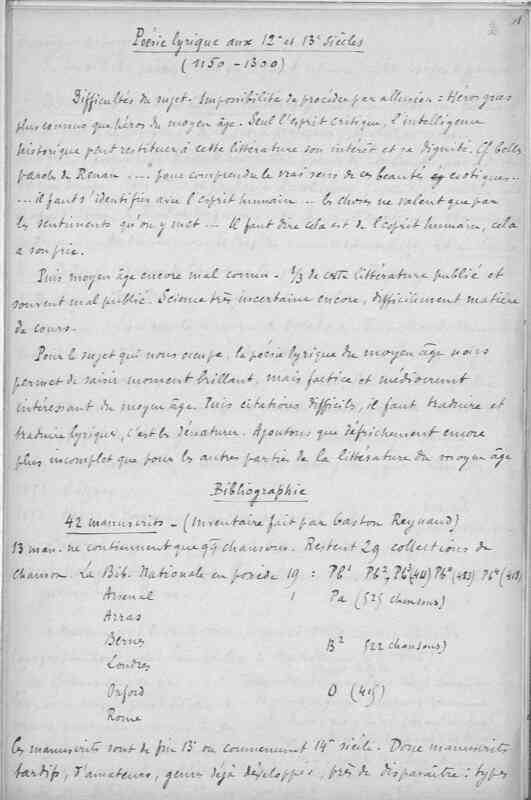 Poésie lyrique aux 12e et 13e siècles
(1150-1300)
Difficultés du sujet. Impossibilité de procéder par allusion = Héros grecs
plus connus que héros du moyen âge. Seul l'esprit critique, l'intelligence
historique peut restituer à cette littérature son intérêt et sa dignité. Cf belles
paroles de Renan .... "pour comprendre le vrai sens de ces beautés exotiques...
... il faut s'identifier avec l'esprit humain ... les choses ne valent que par
les sentiments qu'on y met ... Il faut dire cela est de l'esprit humain, cela
a son prix.
Puis moyen âge encore mal connu. 1/3 de cette littérature publié et
souvent mal publié. Science très incertaine encore, difficilement matière
de cours.
Pour le sujet qui nous occupe, la poésie lyrique du moyen âge nous
permet de saisir moment brillant, mais factice et médiocrement
intéressant du moyen âge. Puis citations difficiles, il faut traduire et
traduire lyrique, c'est les dénaturer. Ajoutons que défrichement encore
plus incomplet que pour les autres parties de la littérature du moyen âge
Bibliographie
42 manuscrits - (Inventaire fait par Gaston Reynaud)
13 man. ne contiennent que 99 chansons. Restent 29 collections de
chanson. La Bib. Nationale en possède 19 : Pb1 Pb2, Pb3
Arsenal 1 Pa (525 chansons)
Arras
Bernes B2 522 chansons)
Londres
Oxford O (415)
Rome
Ces manuscrits sont de fin 13e ou commencent 14e siècle. Donc manuscrits
tardifs, d'amateurs, genre déjà développé, près de disparaître : types